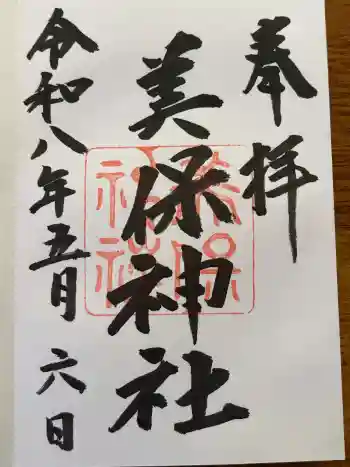 奉拝
美保神社
令和八年五月六日
美保
神社